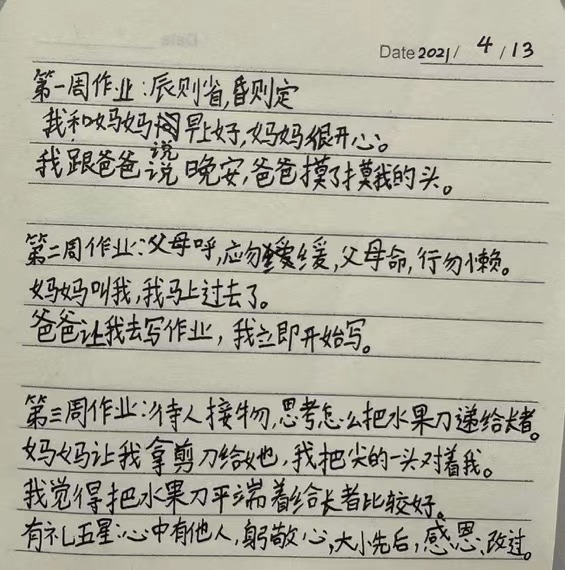 Date 2021/ 4 / 13
第一周作业:辰则省,昏则定
我和妈妈说早上好,妈妈很开心。
我跟爸爸说晚安,爸爸摸了摸我的头。
第二周作业:父母呼,应勿缓,父母命,行勿懒。
妈妈叫我,我马上过去了。
爸爸让我去写作业,我立即开始写。
第三周作业:待人接物,思考怎么把水果刀递给长者。
妈妈让我拿剪刀给她,我把尖的一头对着我。
我觉得把水果刀平端着给长者比较好。
有礼五星:心中有他人,躬敬心,大小先后,感恩,改过。